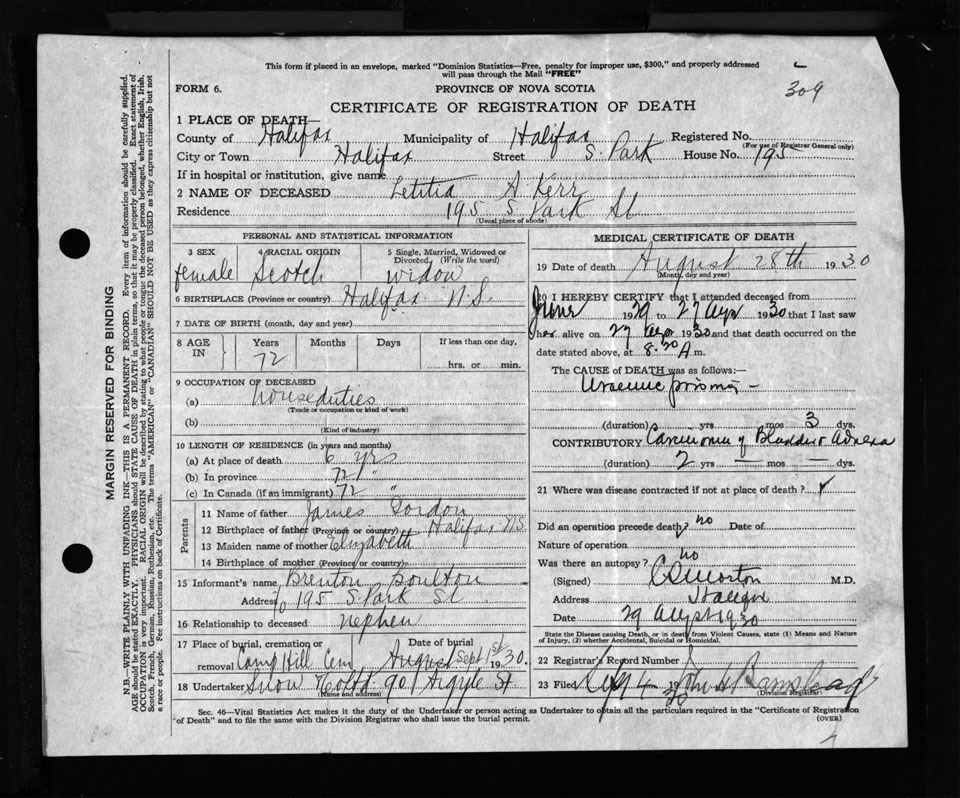 This form if placed in an envelope, marked "Dominion Statistics—Free, penalty for improper use, $300," and properly addressed
will pass through the Mail "FREE"
309
FORM 6.
PROVINCE OF NOVA SCOTIA
CERTIFICATE OF REGISTRATION OF DEATH
1 PLACE OF DEATH—
County of Halifax Municipality of Halifax Registered No.
(For use of Registrar General only)
City or Town Halifax Street S. Park House No. 195
If in hospital or institution, give name
2 NAME OF DECEASED Letitia A Kerr
Residence 195 S. Park St
(Usual place of abode)
PERSONAL AND STATISTICAL INFORMATION
3 SEX 4 RACIAL ORIGIN 5 Single, Married, Widowed or
Divorced (Write the word)
female Scotch widow
6 BIRTHPLACE (Province or country) Halifax N.S.
7 DATE OF BIRTH (month, day and year)
8 AGE IN Years Months Days If less than one day,
72 hrs. or min.
9 OCCUPATION OF DECEASED
(a) house duties
(Trade or occupation or kind of work)
(b)
(Kind of industry)
10 LENGTH OF RESIDENCE (in years and months)
(a) At place of death 6 yrs
(b) In province 72 "
(c) In Canada (if an immigrant) 72 "
Parents
11 Name of father James Gordon
12 Birthplace of father (Province or country) Halifax N.S.
13 Maiden name of mother Elizabeth
14 Birthplace of mother (Province or country)
15 Informant's name Brenton
Address 195 S. Park St
16 Relationship to deceased nephew
17 Place of burial, cremation or Date of burial
removal Camp Hill Cem August Sept 1st 1930.
18 Undertaker Snow & Co Ltd 90 Argyle St
(Name and address)
MEDICAL CERTIFICATE OF DEATH
19 Date of death August 28th 1930
(Month, day and year)
20 I HEREBY CERTIFY that I attended deceased from
June 1929 to 27 Aug 1930 that I last saw
her alive on 27 Aug 1930 and that death occurred on
date stated above, at 8.20 A. m.
The CAUSE of DEATH was as follows:—
(duration) yrs mos 3 dys.
CONTRIBUTORY Carcinoma of Bladder &
(duration) 2 yrs — mos — dys.
21 Where was disease contracted if not at place of death?
Did an operation precede death? no Date of
Nature of operation
Was there an autopsy? no
(Signed) M.D.
Address Halifax
Date 29 Augst 1930
State the Disease causing Death, or in death from Violent Causes, state (1) Means and Nature
of Injury, (2) whether Accidental, Suicidal or Homicidal.
22 Registrar's Record Number
23 Filed 4 19 30 John H
(Division Registrar)
Sec. 46—Vital Statistics Act makes it the duty of the Undertaker or person acting as Undertaker to obtain all the particulars required in the "Certificate of Registration
of Death" and to file the same with the Division Registrar who shall issue the burial permit.
(OVER)
MARGIN RESERVED FOR BINDING
N.B.—WRITE PLAINLY WITH UNFADING INK—THIS IS A PERMANENT RECORD. Every item of information should be carefully supplied.
AGE should be stated EXACTLY. PHYSICIANS should STATE CAUSE OF DEATH in plain terms, so that it may be properly classified. Exact statement of
OCCUPATION is very important. RACIAL ORIGIN will be described by stating to what people or tongue the deceased person belonged, whether English, Irish,
Scotch, French, German, Russian, Ruthenian, etc. The terms "AMERICAN" or "CANADIAN" SHOULD NOT BE USED as they express citizenship but not
a race or people. See instructions on back of Certificate.